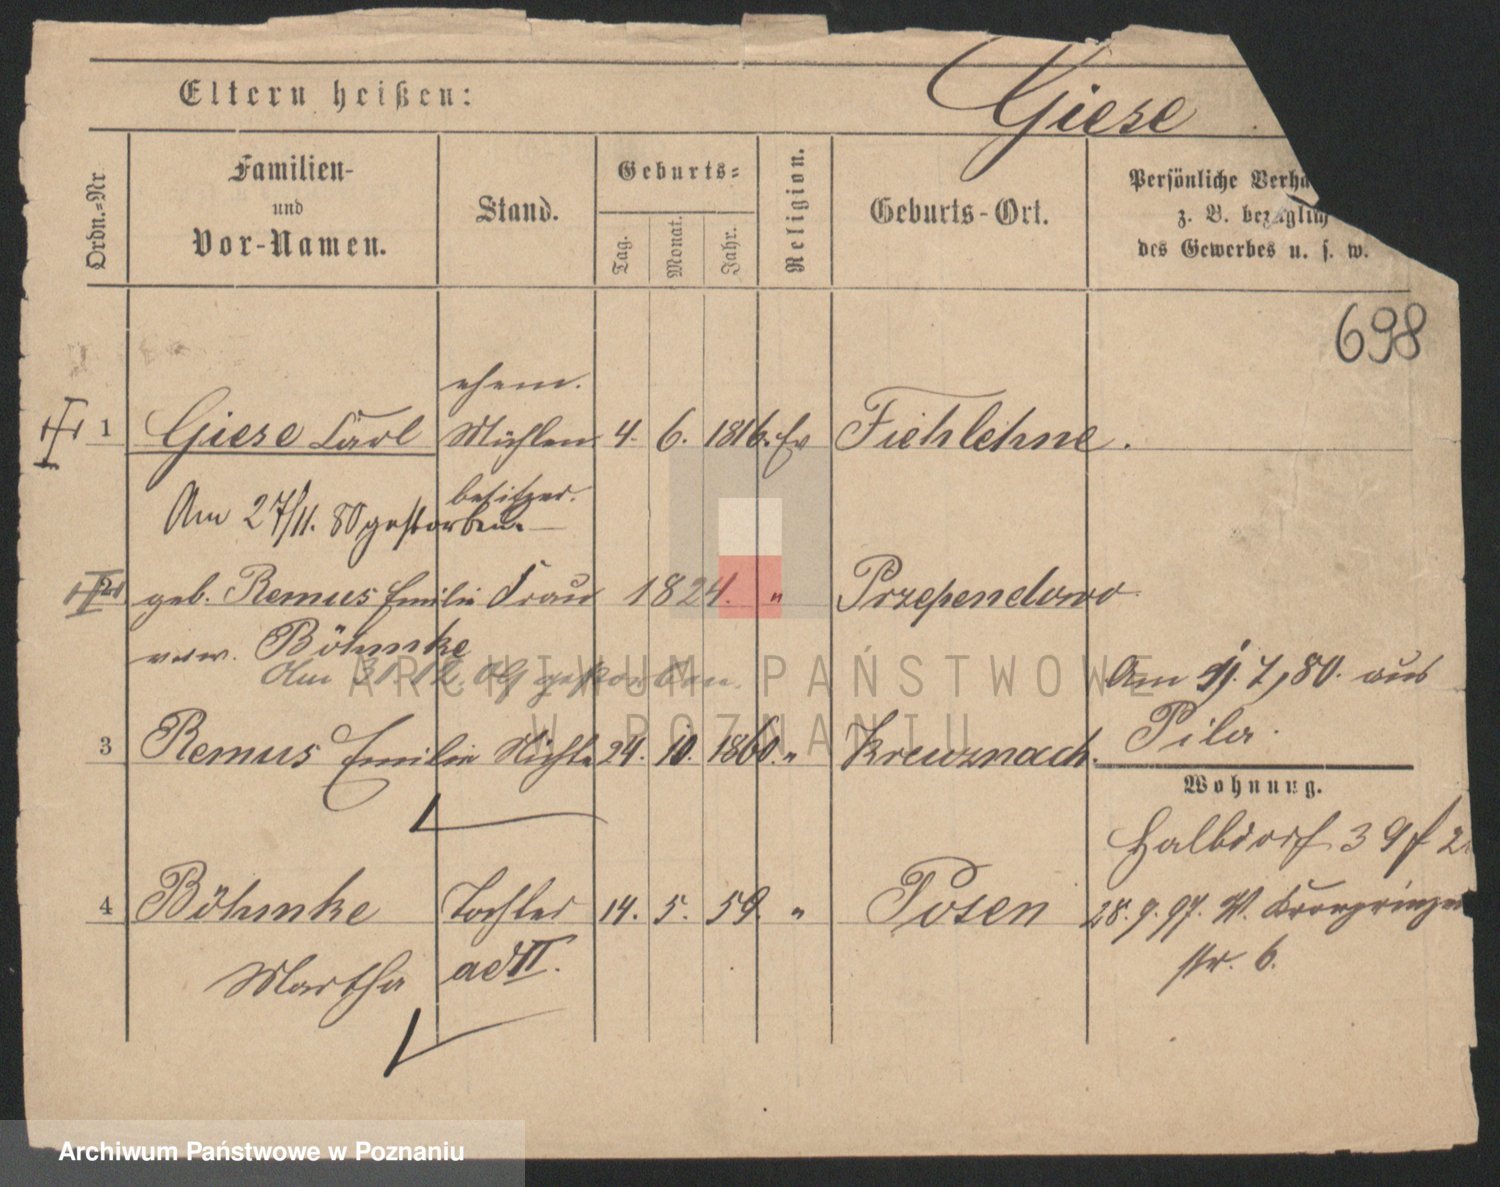 Eltern heißen:
Giese
Ordn.-Nr
Familien-
und
Vor-Namen.
Stand.
Geburts-
Tag.
Monat.
Jahr.
Religion.
Geburts-Ort.
Persönliche Verhä
z. B. bezüglich
des Gewerbes u. s. w.
698
ehem.
1 Giese Carl Mühlen 4. 6. 1816. Ev Fiehlehne.
besitzer.
Am 27/11. 80 gestorben.
2 geb. Remus Emilie Frau 1824. " Przependowo
verw. Böhmke
Am 31.12. 09 gestorben.
Am 9. 7, 80. aus
Pila.
3 Remus Emilie Nichte 24. 10. 1860. " Kreuznach.
Wohnung.
Halbdorf 39
4 Böhmke Tochter 14. 5. 59. " Posen
Martha ad II.
28. 9. 97. W. Kronprinzen
str. 6.
ARCHIWUM PAŃSTWOWE
W POZNANIU
Archiwum Państwowe w Poznaniu